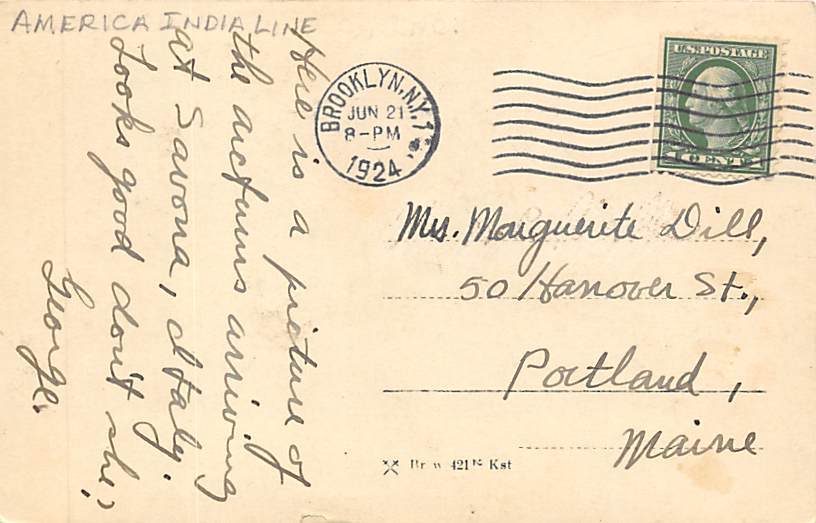 AMERICA INDIA LINE
Here is a picture of
the arcturus arriving
at Savona, Italy.
Looks good don't she?
George.
BROOKLYN, N.Y. 1
JUN 21
8-PM
1924
U.S. POSTAGE
1 CENT 1
Mrs. Marguerite Dill,
50 Hanover St.,
Portland,
Maine
421 Kst